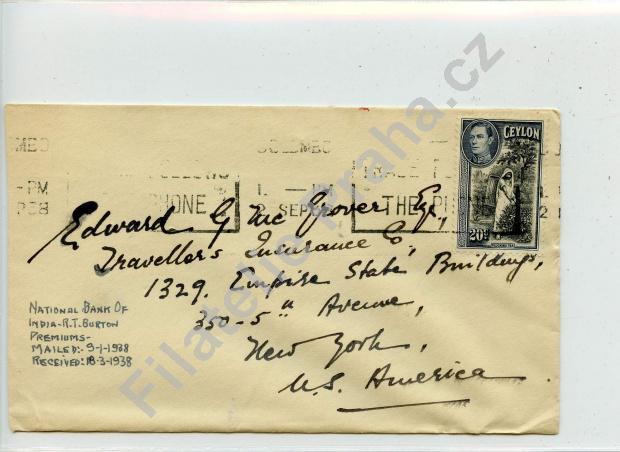 COLOMBO
-PM
1 - PM
P38
2 SEP38
PHONE
THE
CEYLON
20
Edward G Mc Grover Esq,
Travellers Insurance Co,
1329, Empire State Buildings,
350-5" Avenue,
New York,
U.S. America
NATIONAL BANK OF
INDIA-R.T. BURTON
PREMIUMS-
MAILED:- 9-1-1938
RECEIVED: 18-3-1938
Filatelie-Praha.cz